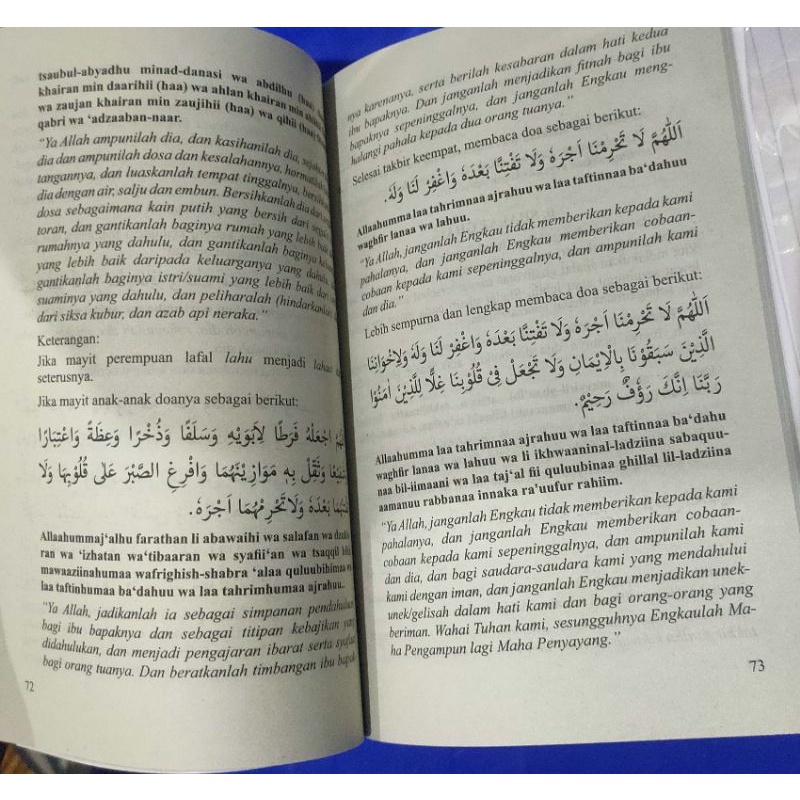 tsaubul-abyadhu minad-danasi wa abdilhu (haa)
khairan min daarihii (haa) wa ahlan khairan min
wa zaujan khairan min zaujihii (haa) wa qihii (haa)
qabri wa 'adzaaban-naar.
"Ya Allah ampunilah dia, dan kasihanilah dia,
dia dan ampunilah dosa dan kesalahannya, hormatilah
tangannya, dan luaskanlah tempat tinggalnya,
dia dengan air, salju dan embun. Bersihkanlah dia dari
dosa sebagaimana kain putih yang bersih dari
toran, dan gantikanlah baginya rumah yang lebih baik
rumahnya yang dahulu, dan gantikanlah baginya
yang lebih baik daripada keluarganya yang dahulu,
gantikanlah baginya istri/suami yang lebih baik dari
suaminya yang dahulu, dan peliharalah (hindarkanlah)
dari siksa kubur, dan azab api neraka."
Keterangan:
Jika mayit perempuan lafal lahu menjadi lahaa
seterusnya.
Jika mayit anak-anak doanya sebagai berikut:
اجْعَلْهُ فَرَطًا لِاَبَوَيْهِ وَسَلَفًا وَذُخْرًا وَعِظَةً وَاعْتِبَارًا
وَثَقِّلْ بِهٖ مَوَازِيْنَهُمَا وَافْرِغِ الصَّبْرَ عَلٰى قُلُوْبِهِمَا وَلَا
بَعْدَهٗ وَلَا تَحْرِمْهُمَا اَجْرَهٗ.
Allaahummaj'alhu farathan li abawaihi wa salafan wa
ran wa 'izhatan wa'tibaaran wa syafii'an wa tsaqqil bihii
mawaaziinahumaa wafrighish-shabra 'alaa quluubihimaa
laa taftinhumaa ba'dahuu wa laa tahrimhumaa ajrahuu.
"Ya Allah, jadikanlah ia sebagai simpanan pendahuluan
bagi ibu bapaknya dan sebagai titipan kebajikan yang
didahulukan, dan menjadi pengajaran ibarat serta
bagi orang tuanya. Dan beratkanlah timbangan ibu bapak
72
nya karenanya, serta berilah kesabaran dalam hati kedua
ibu bapaknya. Dan janganlah menjadikan fitnah bagi ibu
bapaknya sepeninggalnya, dan janganlah Engkau meng-
halangi pahala kepada dua orang tuanya."
Selesai takbir keempat, membaca doa sebagai berikut:
اَللّٰهُمَّ لَا تَحْرِمْنَا اَجْرَهٗ وَلَا تَفْتِنَّا بَعْدَهٗ وَاغْفِرْ لَنَا وَلَهٗ.
Allaahumma laa tahrimnaa ajrahuu wa laa taftinnaa ba'dahuu
waghfir lanaa wa lahuu.
"Ya Allah, janganlah Engkau tidak memberikan kepada kami
pahalanya, dan janganlah Engkau memberikan cobaan-
cobaan kepada kami sepeninggalnya, dan ampunilah kami
dan dia."
Lebih sempurna dan lengkap membaca doa sebagai berikut:
اَللّٰهُمَّ لَا تَحْرِمْنَا اَجْرَهٗ وَلَا تَفْتِنَّا بَعْدَهٗ وَاغْفِرْ لَنَا وَلَهٗ وَلِاِخْوَانِنَا
الَّذِيْنَ سَبَقُوْنَا بِالْاِيْمَانِ وَلَا تَجْعَلْ فِيْ قُلُوْبِنَا غِلًّا لِلَّذِيْنَ اٰمَنُوْا
رَبَّنَا اِنَّكَ رَؤُفٌ رَحِيْمٌ.
Allaahumma laa tahrimnaa ajrahuu wa laa taftinnaa ba'dahu
waghfir lanaa wa lahuu wa li ikhwaaninal-ladziina sabaquu-
naa bil-iimaani wa laa taj'al fii quluubinaa ghillal lil-ladziina
aamanuu rabbanaa innaka ra'uufur rahiim.
"Ya Allah, janganlah Engkau tidak memberikan kepada kami
pahalanya, dan janganlah Engkau memberikan cobaan-
cobaan kepada kami sepeninggalnya, dan ampunilah kami
dan dia, dan bagi saudara-saudara kami yang mendahului
kami dengan iman, dan janganlah Engkau menjadikan unek-
unek/gelisah dalam hati kami dan bagi orang-orang yang
beriman. Wahai Tuhan kami, sesungguhnya Engkaulah Ma-
ha Pengampun lagi Maha Penyayang."
73